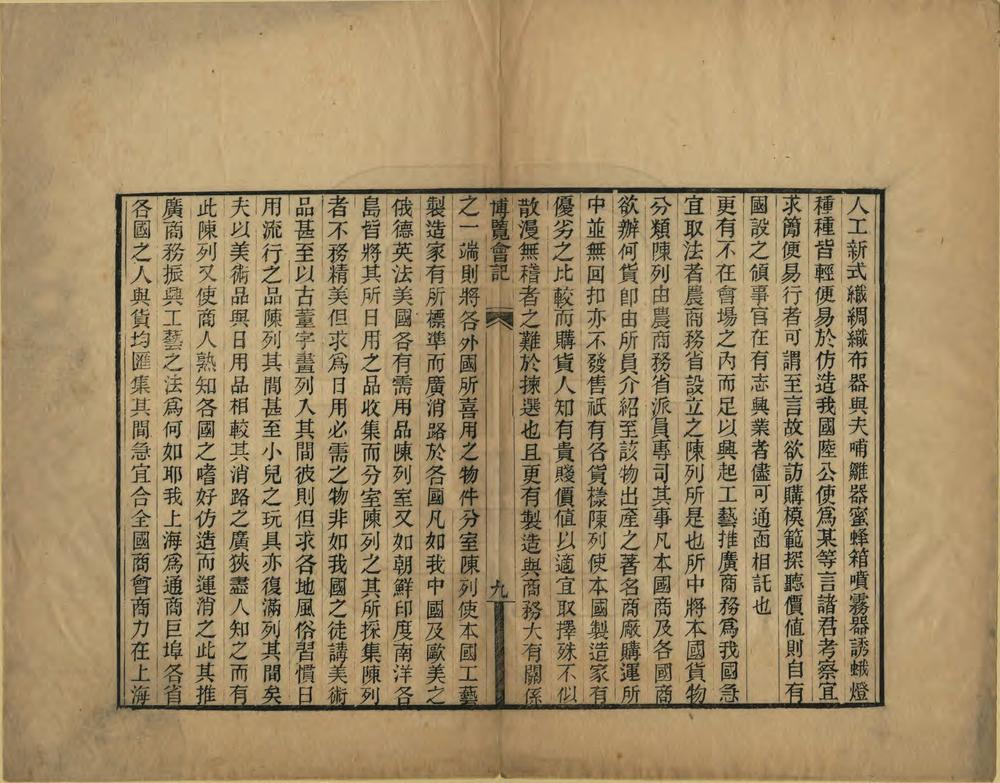 人工新式織綢織布器與夫哺雛器蜜蜂箱噴霧器誘蛾燈
種種皆輕便易於仿造我國陸公使爲某等言諸君考察宜
求簡便易行者可謂至言故欲訪購模範探聽價值則自有
國設之領事官在有志興業者儘可通函相託也
更有不在會場之內而足以興起工藝推廣商務爲我國急
宜取法者農商務省設立之陳列所是也所中將本國貨物
分類陳列由農商務省派員專司其事凡本國商及各國商
欲辦何貨卽由所員介紹至該物出產之著名商廠購運所
中並無回扣亦不發售祇有各貨樣陳列使本國製造家有
優劣之比較而購貨人知有貴賤價值以適宜取擇殊不似
散漫無稽者之難於揀選也且更有製造與商務大有關係
博覽會記
九
之一端則將各外國所喜用之物件分室陳列使本國工藝
製造家有所標準而廣消路於各國凡如我中國及歐美之
俄德英法美國各有需用品陳列室又如朝鮮印度南洋各
島皆將其所日用之品收集而分室陳列之其所採集陳列
者不務精美但求爲日用必需之物非如我國之徒講美術
品甚至以古董字畫列入其間彼則但求各地風俗習慣日
用流行之品陳列其間甚至小兒之玩具亦復滿列其間矣
夫以美術品與日用品相較其消路之廣狹盡人知之而有
此陳列又使商人熟知各國之嗜好仿造而運消之此其推
廣商務振興工藝之法爲何如耶我上海爲通商巨埠各省
各國之人與貨均匯集其間急宜合全國商會商力在上海